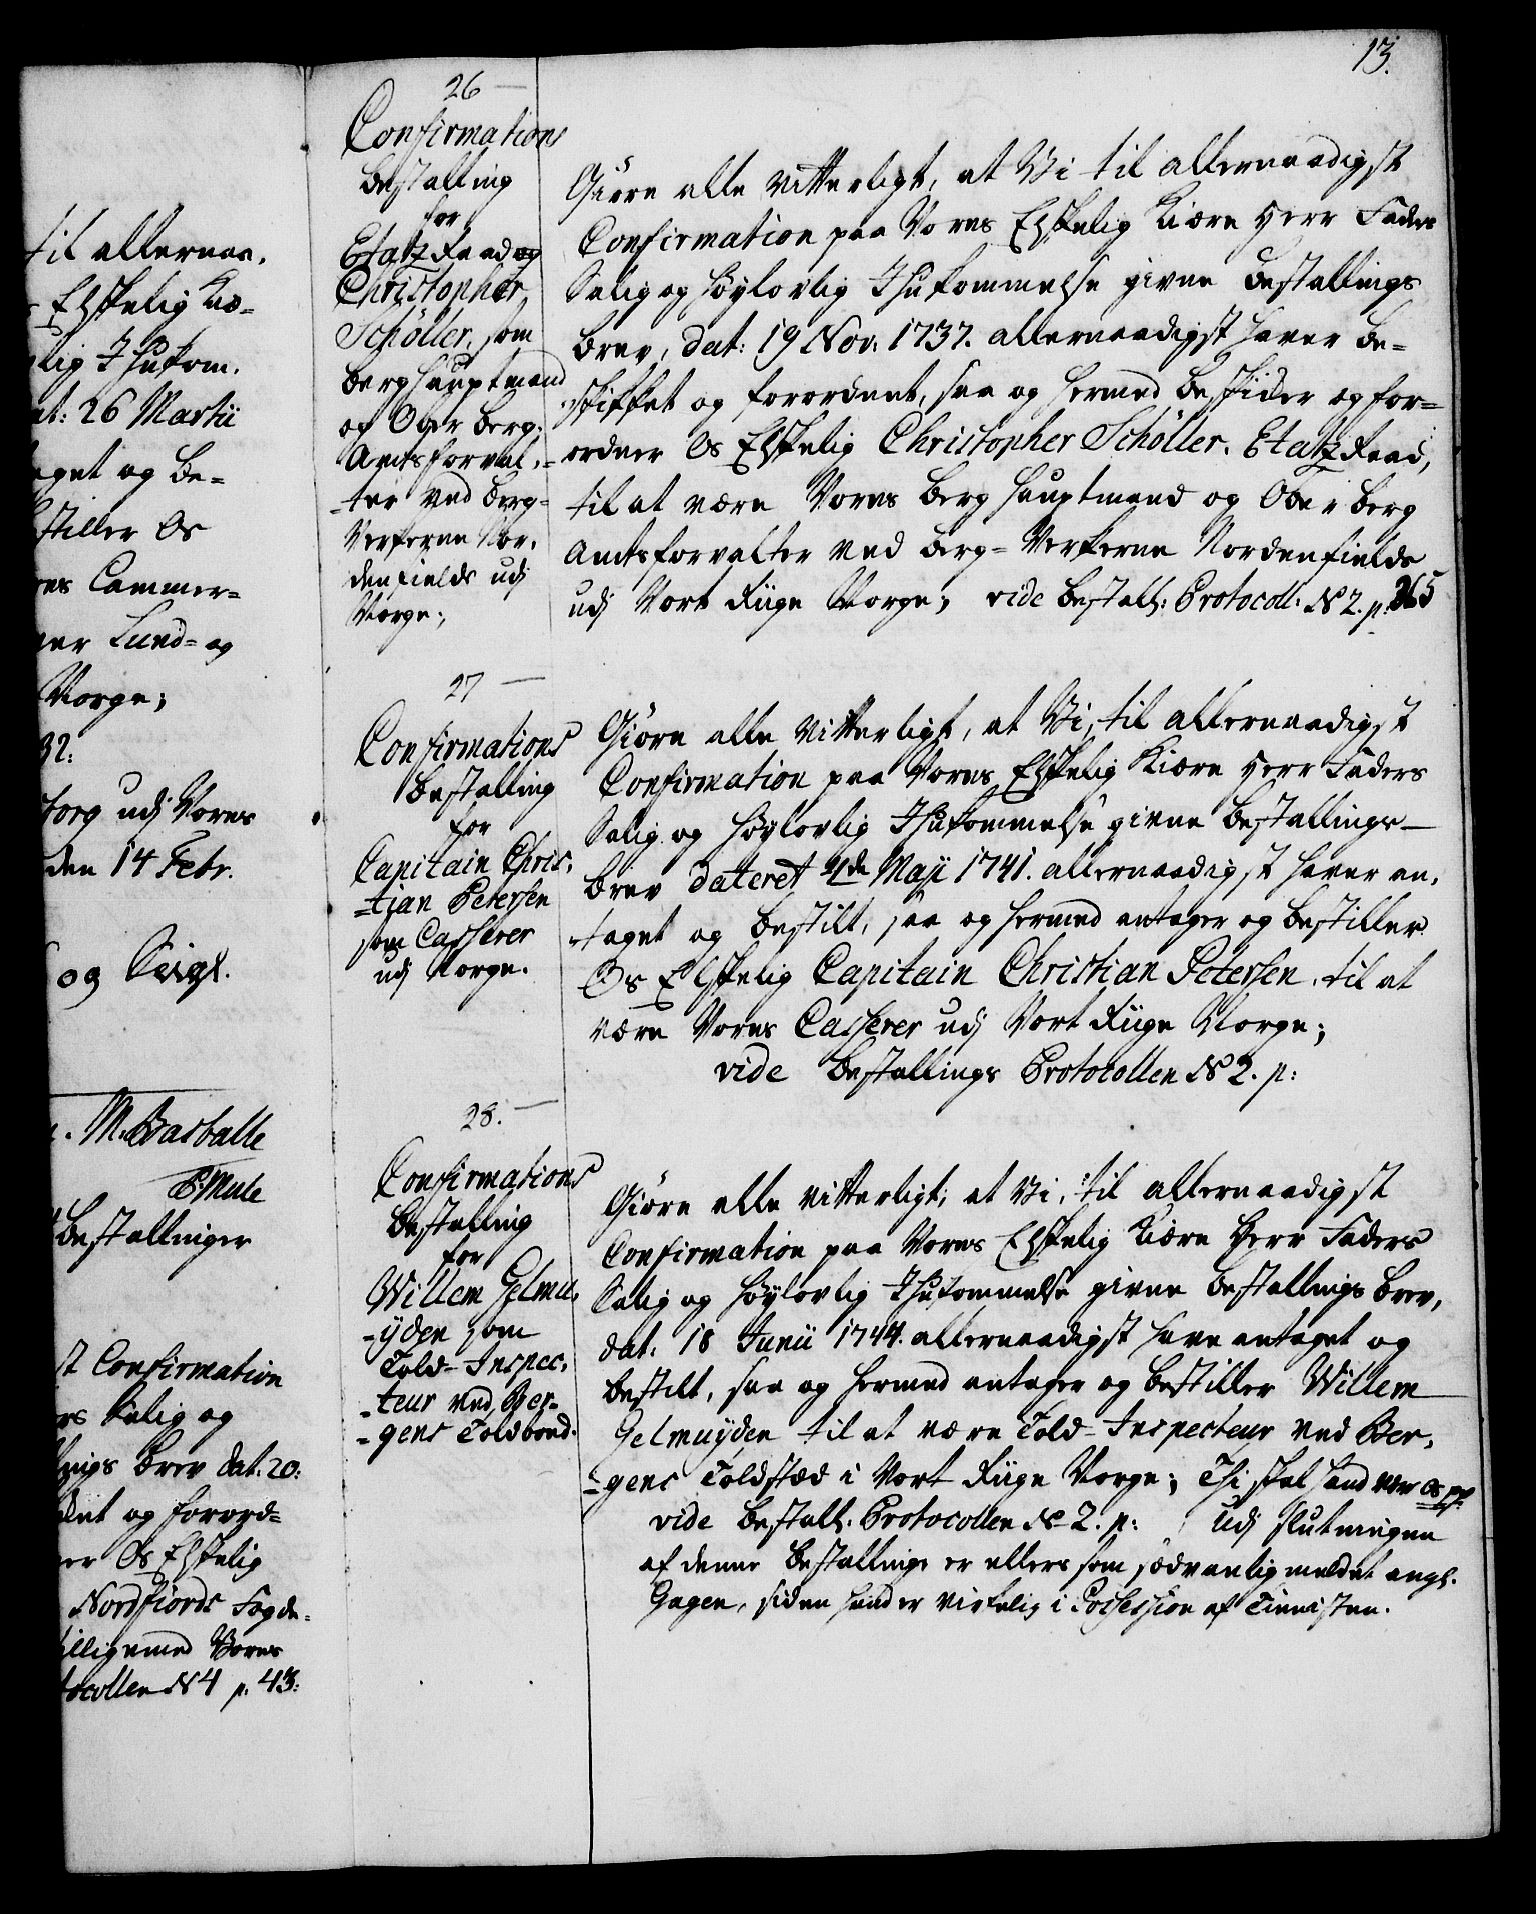 13.
til allernaa,
Elskelig Kiæ-
lig Ihukom,
at: 26 Martii
aget og be-
stiller Os
res Cammer-
ner Lund- og
Norge;
32:
borg udj Vores
den 14 Febr.
og Seigl.
M. Barballe
P Mule
bestallinger
st Confirmation
rs Salig og
lings brev dat: 20:
ket og forord-
ner Os Elskelig
Nordfiords Fogde-
illigemed Vores
tocollen N 4 p. 43:
26 —
Confirmations
bestalling
for
Etatz Raad og
Christopher
Schöller, som
berghauptmand
og Ober berg-
Amtsforval,
-ter ved berg-
Verkerne Nor,
denfields udj
Norge;
Giöre alle vitterligt, at Vi til allernaadigst
Confirmation paa Vores Elskelig Kiære Herr Faders
Salig og Höylovlig Ihukommelse givne bestallings
brev, dat: 19 Nov: 1737. allernaadigst haver be-
skikket og forordnet, saa og hermed beskicker og for-
ordner Os Elskelig Christopher Schöller, Etatz Raad,
til at være Vores berghauptmand og Ober berg
Amtsforvalter ved berg- Verkerne Nordenfields
udj Vort Riige Norge; vide bestall: Protocoll: N 2. p. 365
27 —
Confirmations
bestalling
for
Capitain Chris,
-tian Petersen
som Casserer
udj Norge.
Giöre alle vitterligt, at Vi, til allernaadigst
Confirmation paa Vores Elskelig Kiære Herr Faders
Salig og Höylovlig Ihukommelse givne bestallings—
brev dateret 4de Maji 1741. allernaadigst haver an,
-taget og bestilt, saa og hermed antager og bestiller
Os Elskelig Capitain Christian Petersen, til at
være Vores Casserer udj Vort Riige Norge;
vide bestallings Protocollen N 2. p:
28. —
Confirmations
bestalling
for
Willem Gelmu,
-ijden som
Told- Inspec,
-teur ved Ber-
-gens Toldbood.
Giöre alle vitterligt, at Vi, til allernaadigst
Confirmation paa Vores Elskelig Kiære Herr Faders
Salig og Höylovlig Ihukommelse givne bestallings brev,
dat: 18 Junii 1744. allernaadigst have antaget og
bestilt, saa og hermed antager og bestiller Willem
Gelmuijden til at være Told- Inspecteur ved Ber,
-gens Toldstæd i Vort Riige Norge; Thi skal hand være Os pp.
vide bestall: Protocollen N 2. p: , Udj slutningen
af denne bestallings er ellers som sædvanlig meldet angl.
Gagen, siden hand er virkelig i Possession af Tienisten.